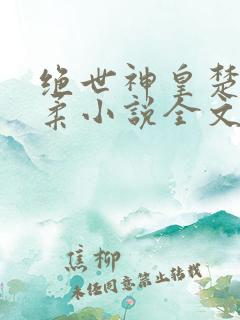 绝世神皇楚
柔小说全文
焦柳
未经同意禁止转载